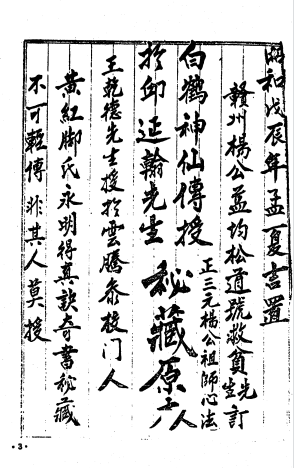 昭和戊辰年孟夏言置
贛州楊公益均松道號救貧先生訂
白鶴神仙傳授
正三元楊公祖師心法
於邱延翰先生 秘藏原
王乾德先生授於雲騰泰校门人
黃紅脚氏永明得真訣奇書秘藏
不可輕傳非其人莫授
•3•